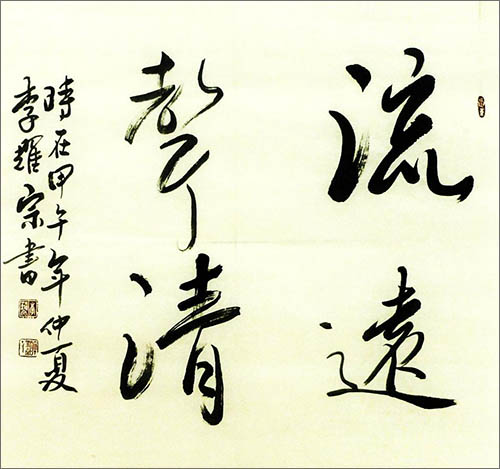 流遠
聲清
時在甲午年仲夏
李耀宗書